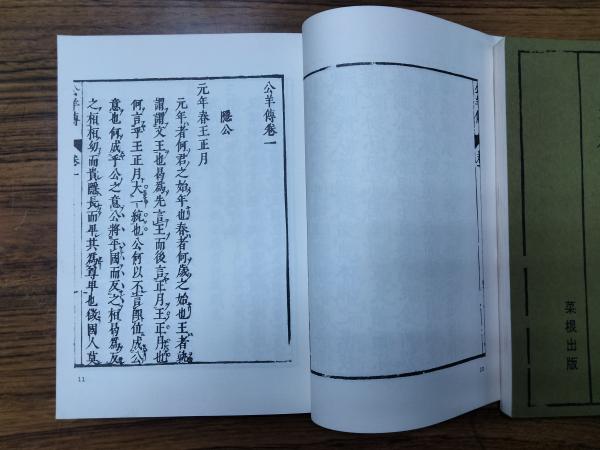 菜根出版
公羊傳
10
公羊傳卷一
隱公
元年春王正月
元年者何君之始年也春者何歲之始也王者孰
謂謂文王也曷爲先言王而後言正月王正月也
何言乎王正月大一統也公何以不言即位成公
意也何成乎公之意公將平國而反之桓曷爲反
之桓桓幼而貴隱長而卑其爲尊卑也微國人莫
公羊傳 卷一 一
11